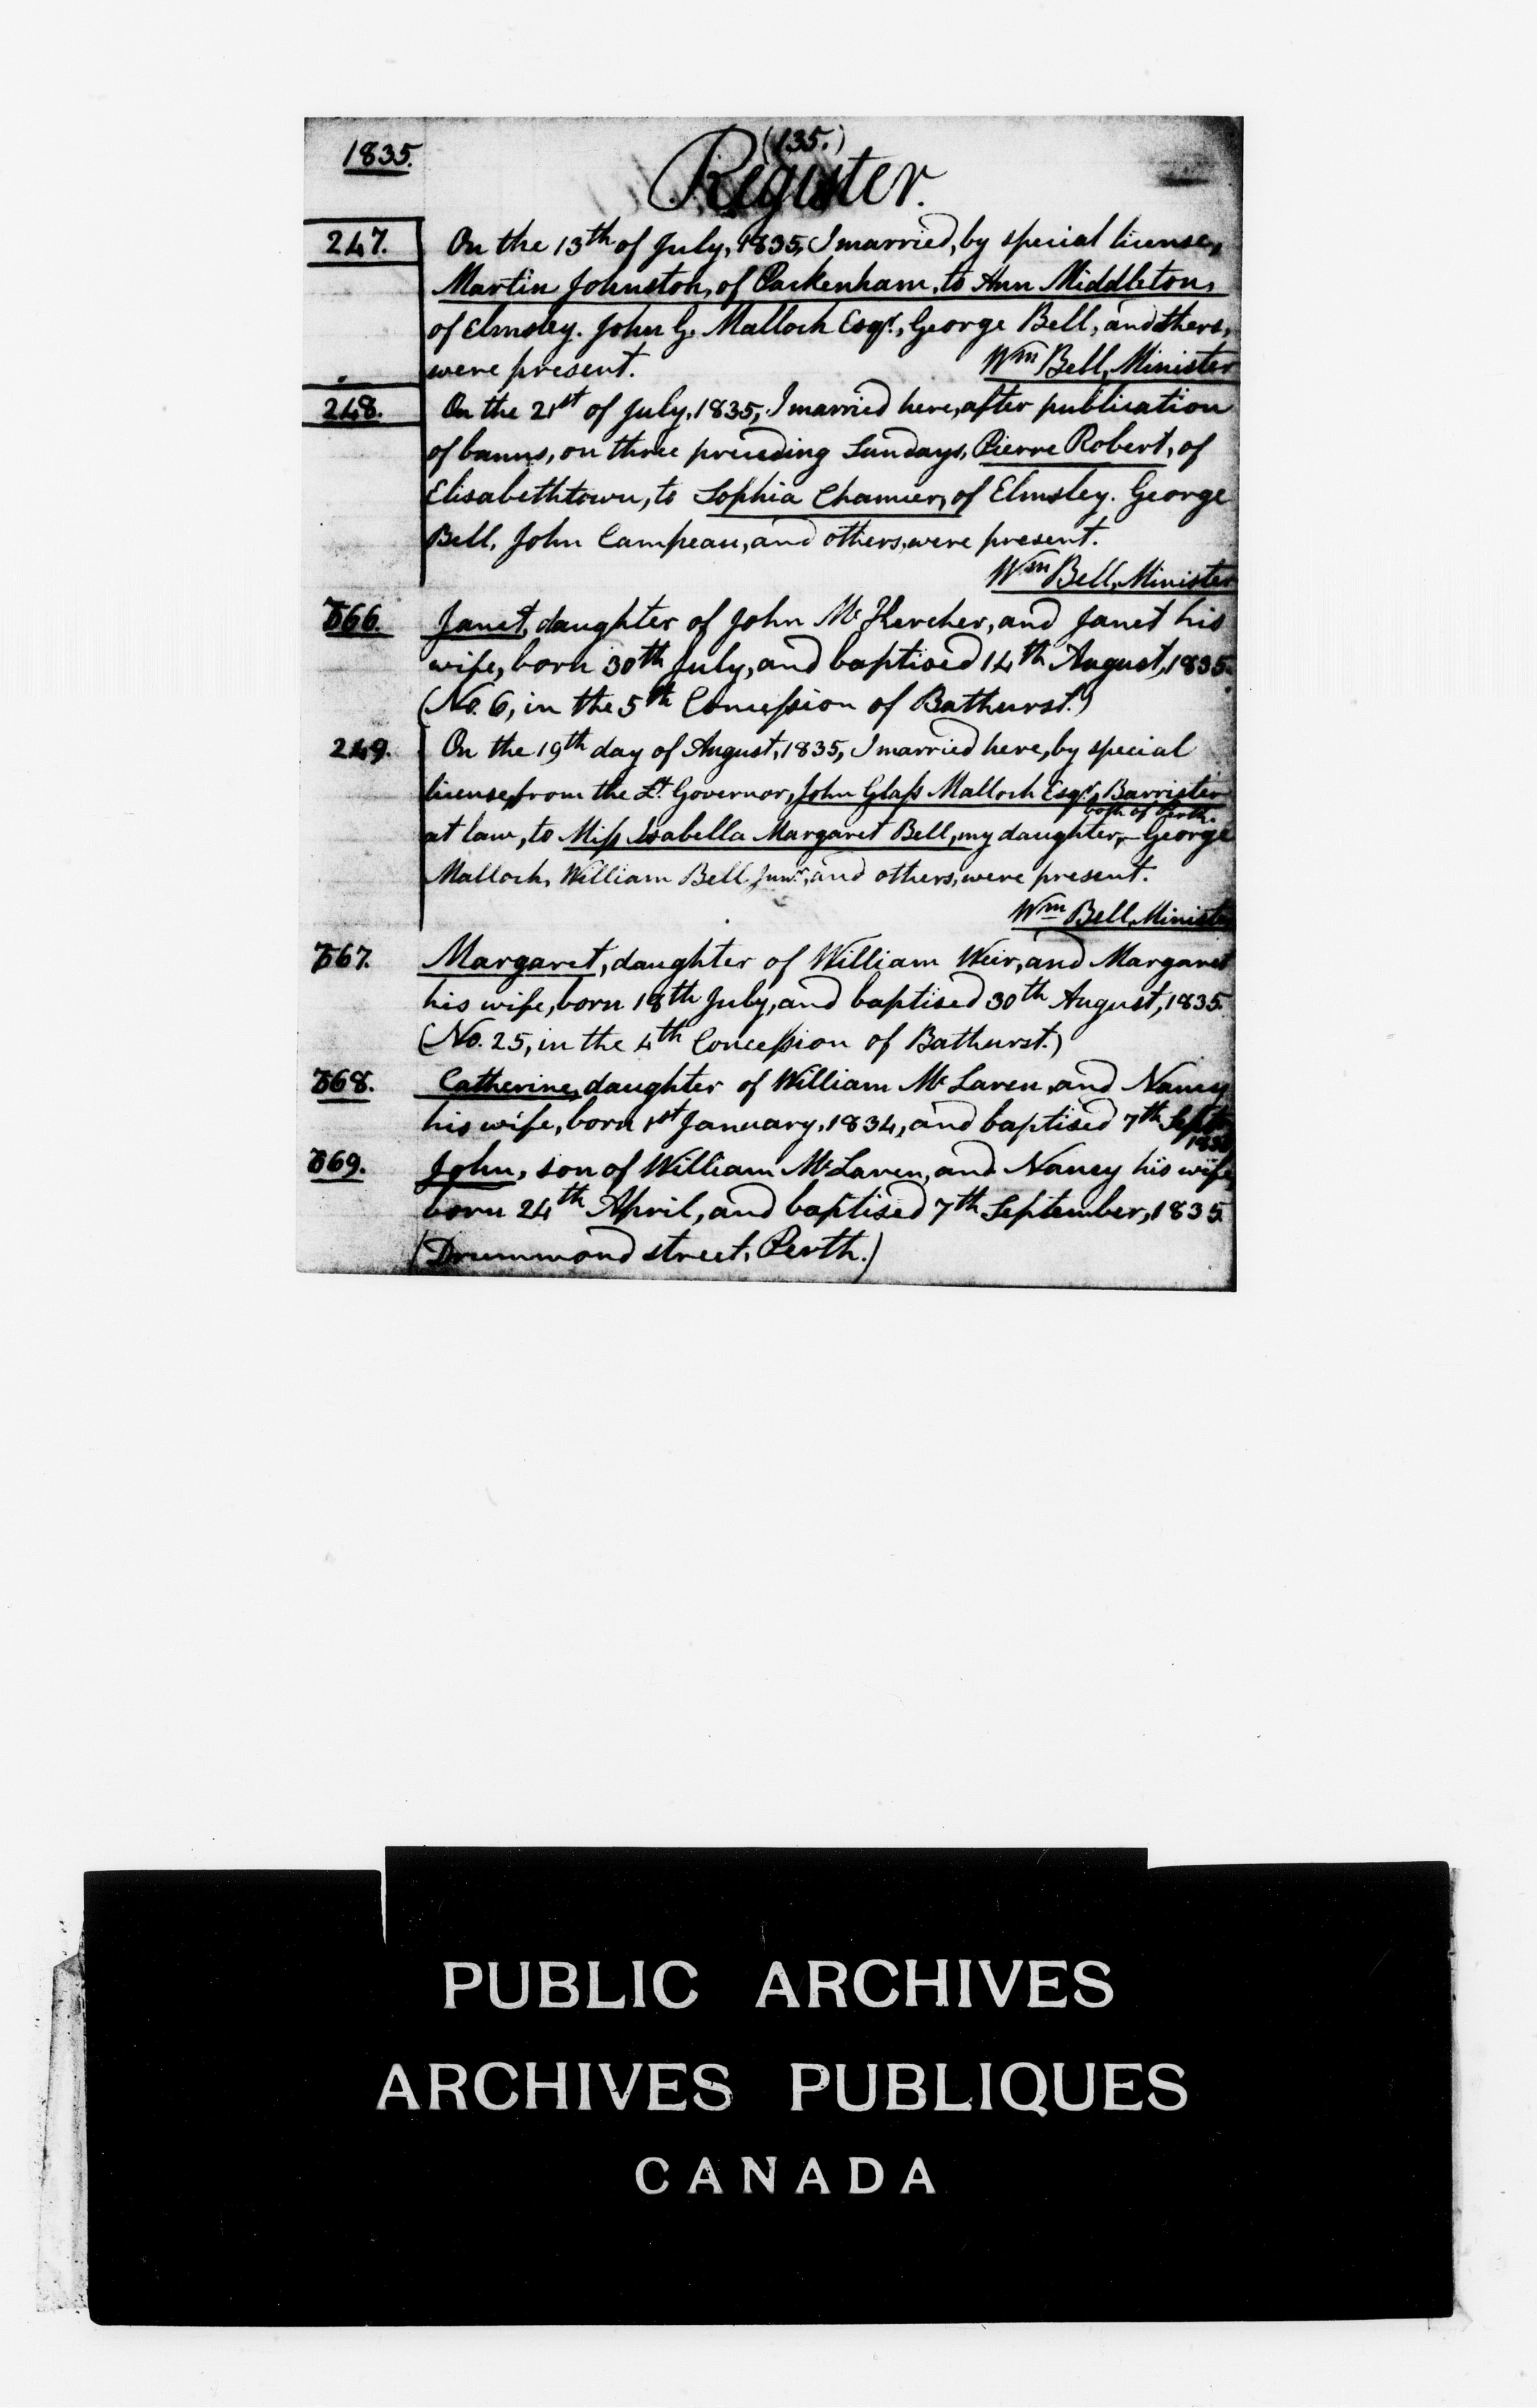 (135.)
1835.
Register.
247. On the 13th of July, 1835, I married, by special license,
Martin Johnston, of Packenham, to Ann Middleton,
of Elmsley. John G. Malloch Esqr., George Bell, and others,
were present. Wm Bell, Minister
248. On the 21st of July, 1835, I married here, after publication
of banns, on three preceding Sundays, Pierre Robert, of
Elisabethtown, to Sophia Chamier, of Elmsley. George
Bell, John Campeau, and others, were present.
Wm Bell, Minister
766. Janet, daughter of John McKercher, and Janet his
wife, born 30th July, and baptised 14th August, 1835.
(No. 6, in the 5th Concession of Bathurst.)
249. On the 19th day of August, 1835, I married here, by special
license from the Lt. Governor, John Glass Malloch Esqr., Barrister
both of Perth.
at law, to Miss Isabella Margaret Bell, my daughter, George
Malloch, William Bell Junr., and others, were present.
Wm Bell, Minister
767. Margaret, daughter of William Weir, and Margaret
his wife, born 18th July, and baptised 30th August, 1835.
(No. 25, in the 4th Concession of Bathurst.)
768. Catherine, daughter of William McLaren, and Nancy
his wife, born 1st January, 1834, and baptised 7th Sept.
1835
769. John, son of William McLaren, and Nancy his wife,
born 24th April, and baptised 7th September, 1835
(Drummond street, Perth.)
PUBLIC ARCHIVES
ARCHIVES PUBLIQUES
CANADA